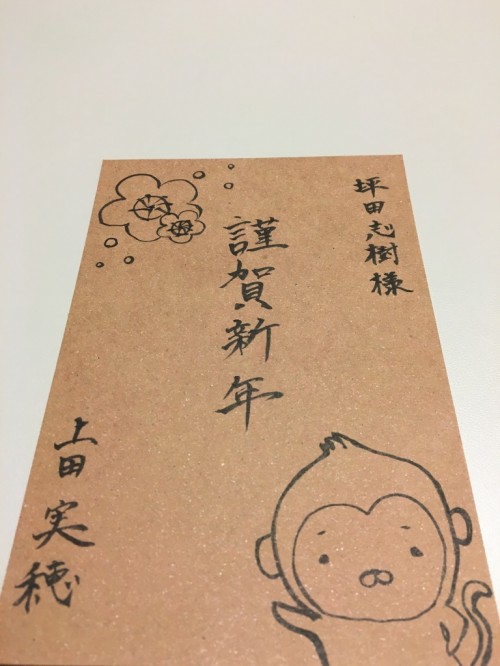 坪田志樹様
謹賀新年
上田実穂